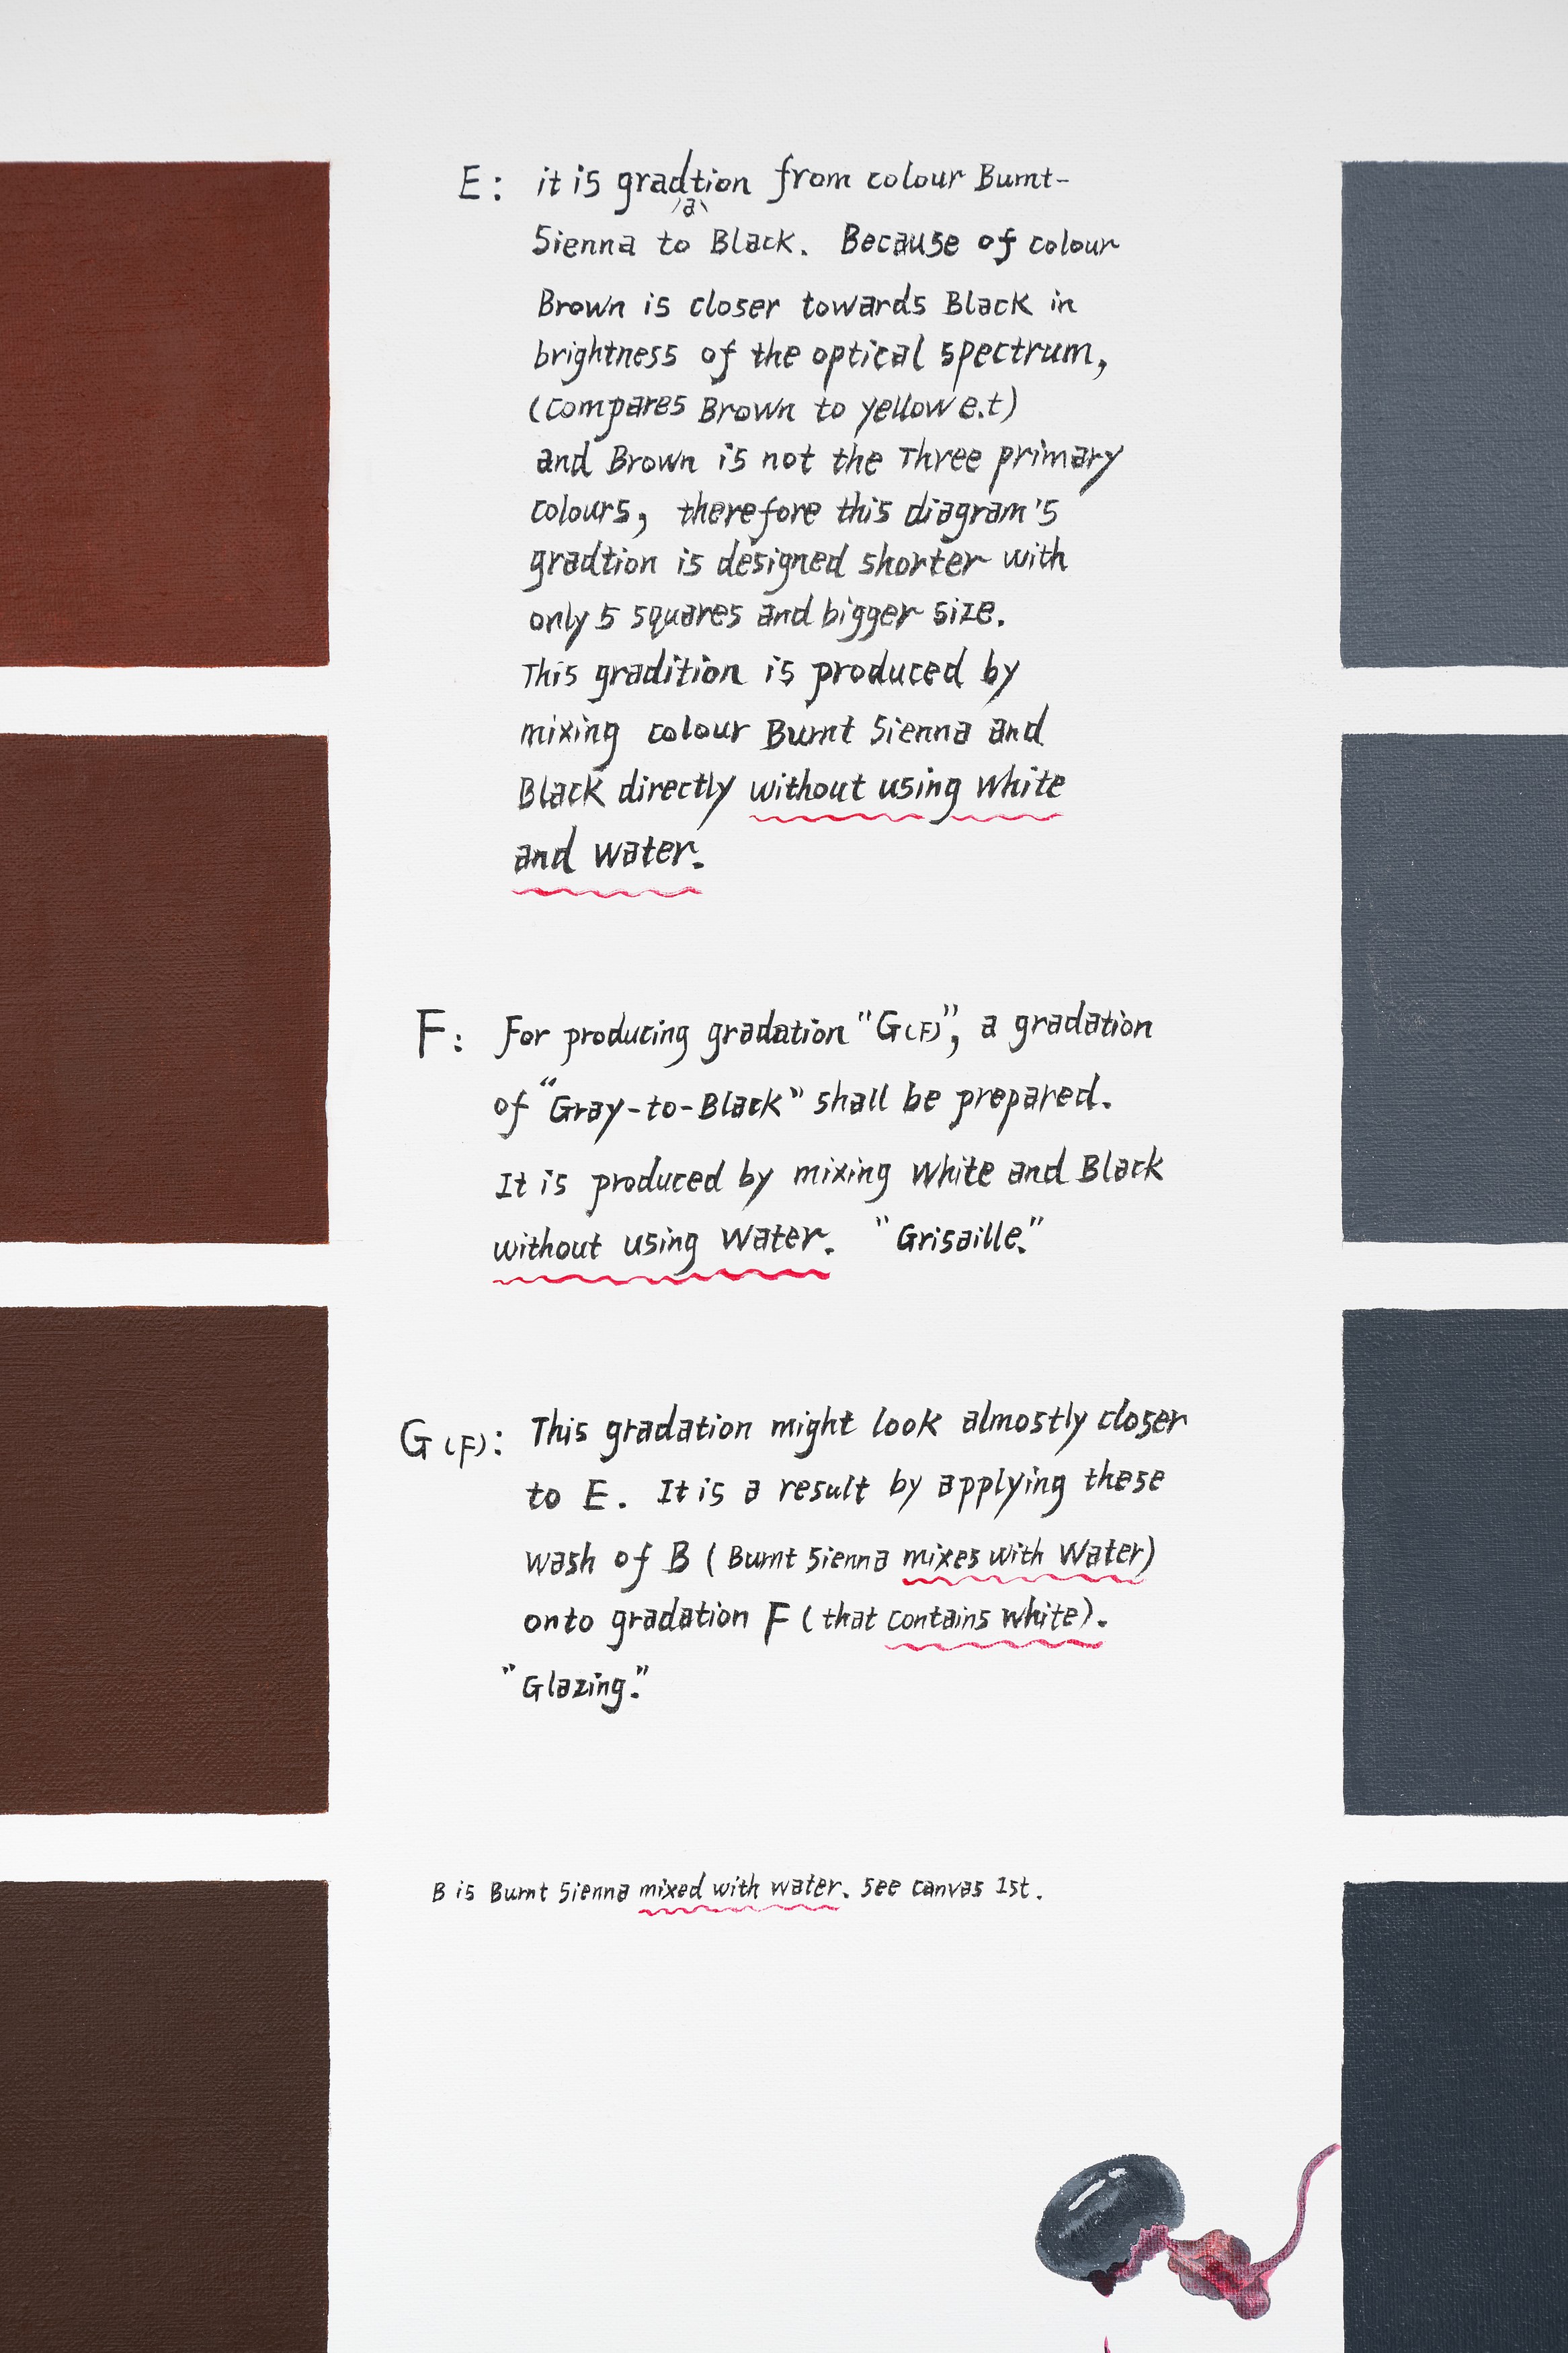 E: it is gradtion from colour Burnt-
/a\
Sienna to Black. Because of colour
Brown is closer towards Black in
brightness of the optical spectrum,
(compares Brown to yellow e.t)
and Brown is not the Three primary
colours, therefore this diagram's
gradtion is designed shorter with
only 5 squares and bigger size.
This gradition is produced by
mixing colour Burnt Sienna and
Black directly without using white
and water.
F: For producing gradation "G(F)", a gradation
of "Gray-to-Black" shall be prepared.
It is produced by mixing White and Black
without using Water. "Grisaille."
G(F): This gradation might look almostly closer
to E. It is a result by applying these
wash of B (Burnt Sienna mixes with Water)
onto gradation F (that contains white).
"Glazing."
B is Burnt Sienna mixed with water. See canvas 1st.